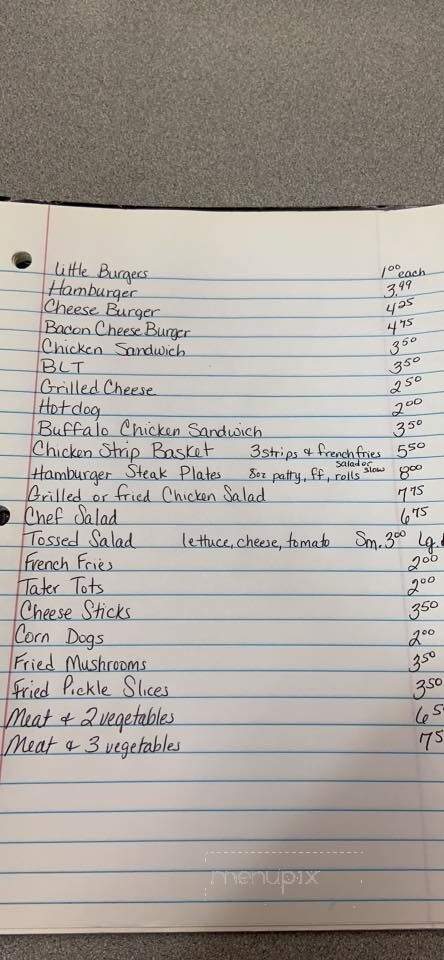 Little Burgers 1.00 each
Hamburger 3.99
Cheese Burger 4.25
Bacon Cheese Burger 4.75
Chicken Sandwich 3.50
BLT 3.50
Grilled Cheese 2.50
Hotdog 2.00
Buffalo Chicken Sandwich 3.50
Chicken Strip Basket 3 strips & french fries 5.50
Hamburger Steak Plates 8oz patty, ff, salad or slaw rolls 8.00
Grilled or fried Chicken Salad 7.75
Chef Salad 6.75
Tossed Salad lettuce, cheese, tomato Sm. 3.00 Lg.
French Fries 2.00
Tater Tots 2.00
Cheese Sticks 3.50
Corn Dogs 2.00
Fried Mushrooms 3.50
Fried Pickle Slices 3.50
Meat & 2 vegetables 6.5
Meat & 3 vegetables 7.5
menupix